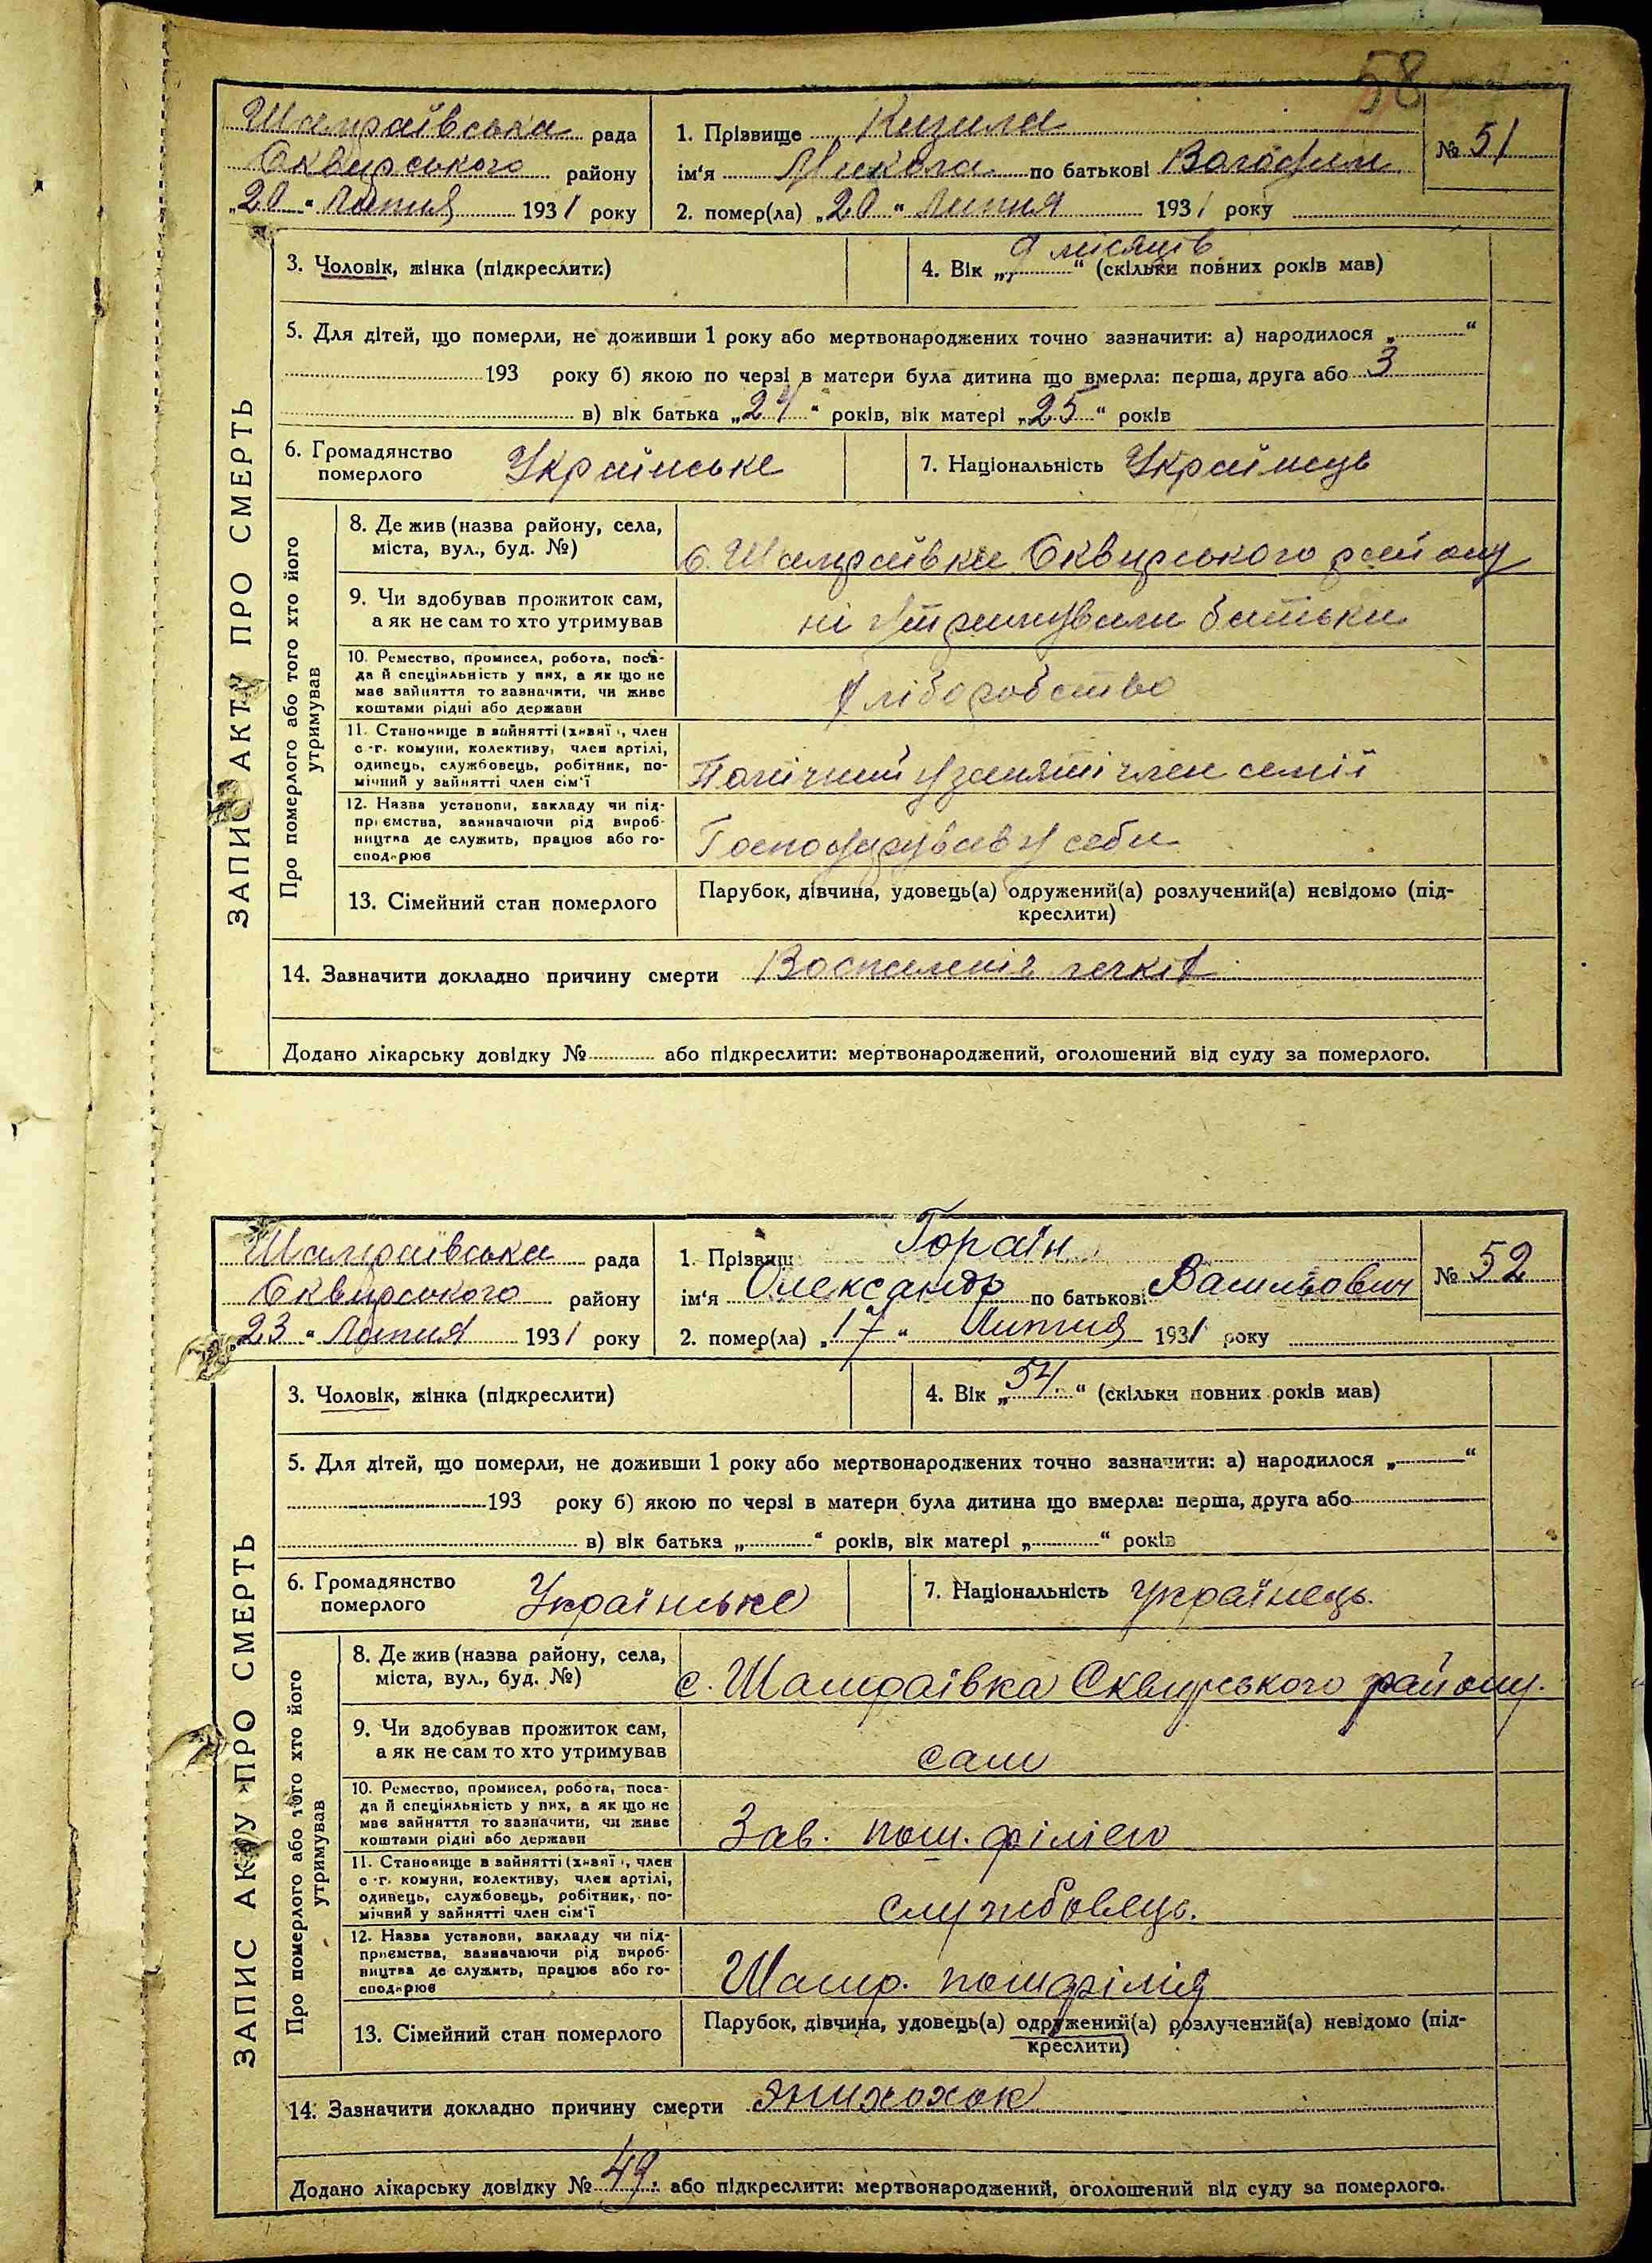 58
Шамраївська рада
Сквирського району
„20“ Липня 1931 року
1. Прізвище Кизила
№ 51
ім'я Микола по батькові Володим
2. помер(ла) „20“ Липня 1931 року
ЗАПИС АКТУ ПРО СМЕРТЬ
3. Чоловік, жінка (підкреслити)
4. Вік „9 місяців“ (скільки повних років мав)
5. Для дітей, що померли, не доживши 1 року або мертвонароджених точно зазначити: а) народилося „ “
193 року б) якою по черзі в матери була дитина що вмерла: перша, друга або 3
в) вік батька „27“ років, вік матері „25“ років
6. Громадянство
померлого Українське
7. Національність Українець
Про померлого або того хто його
утримував
8. Де жив (назва району, села,
міста, вул., буд. №)
с. Шамраївка Сквирського району
9. Чи здобував прожиток сам,
а як не сам то хто утримував
ні утримували батьки
10. Ремество, промисел, робота, поса-
да й спеціяльність у них, а як що не
має зайняття то зазначити, чи живе
коштами рідні або держави
Хліборобство
11. Становище в зайнятті (хазяї , член
с.-г. комуни, колективу, член артілі,
одинець, службовець, робітник, по-
мічний у зайнятті член сім'ї
Помічний у занятті член семії
12. Назва установи, закладу чи під-
приємства, зазначаючи рід вироб-
ництва де служить, працює або го-
сподарює
Господарував у себе
13. Сімейний стан померлого
Парубок, дівчина, удовець(а) одружений(а) розлучений(а) невідомо (під-
креслити)
14. Зазначити докладно причину смерти Воспаленіє легків
Додано лікарську довідку № або підкреслити: мертвонароджений, оголошений від суду за померлого.
Шамраївська рада
Сквирського району
„23“ Липня 1931 року
1. Прізвищ Гораїн
№ 52
ім'я Олександр по батькові Васильович
2. помер(ла) „17“ Липня 1931 року
ЗАПИС АКТУ ПРО СМЕРТЬ
3. Чоловік, жінка (підкреслити)
4. Вік „54“ (скільки повних років мав)
5. Для дітей, що померли, не доживши 1 року або мертвонароджених точно зазначити: а) народилося „ “
193 року б) якою по черзі в матери була дитина що вмерла: перша, друга або
в) вік батька „ “ років, вік матері „ “ років
6. Громадянство
померлого Українське
7. Національність українець.
Про померлого або того хто його
утримував
8. Де жив (назва району, села,
міста, вул., буд. №)
с. Шамраївка Сквирського району.
9. Чи здобував прожиток сам,
а як не сам то хто утримував
сам
10. Ремество, промисел, робота, поса-
да й спеціяльність у них, а як що не
має зайняття то зазначити, чи живе
коштами рідні або держави
Зав. пош. філією
11. Становище в зайнятті (хазяї , член
с.-г. комуни, колективу, член артілі,
одинець, службовець, робітник, по-
мічний у зайнятті член сім'ї
службовець.
12. Назва установи, закладу чи під-
приємства, зазначаючи рід вироб-
ництва де служить, працює або го-
сподарює
Шамр. пошфілія
13. Сімейний стан померлого
Парубок, дівчина, удовець(а) одружений(а) розлучений(а) невідомо (під-
креслити)
14. Зазначити докладно причину смерти
Додано лікарську довідку № 49. або підкреслити: мертвонароджений, оголошений від суду за померлого.